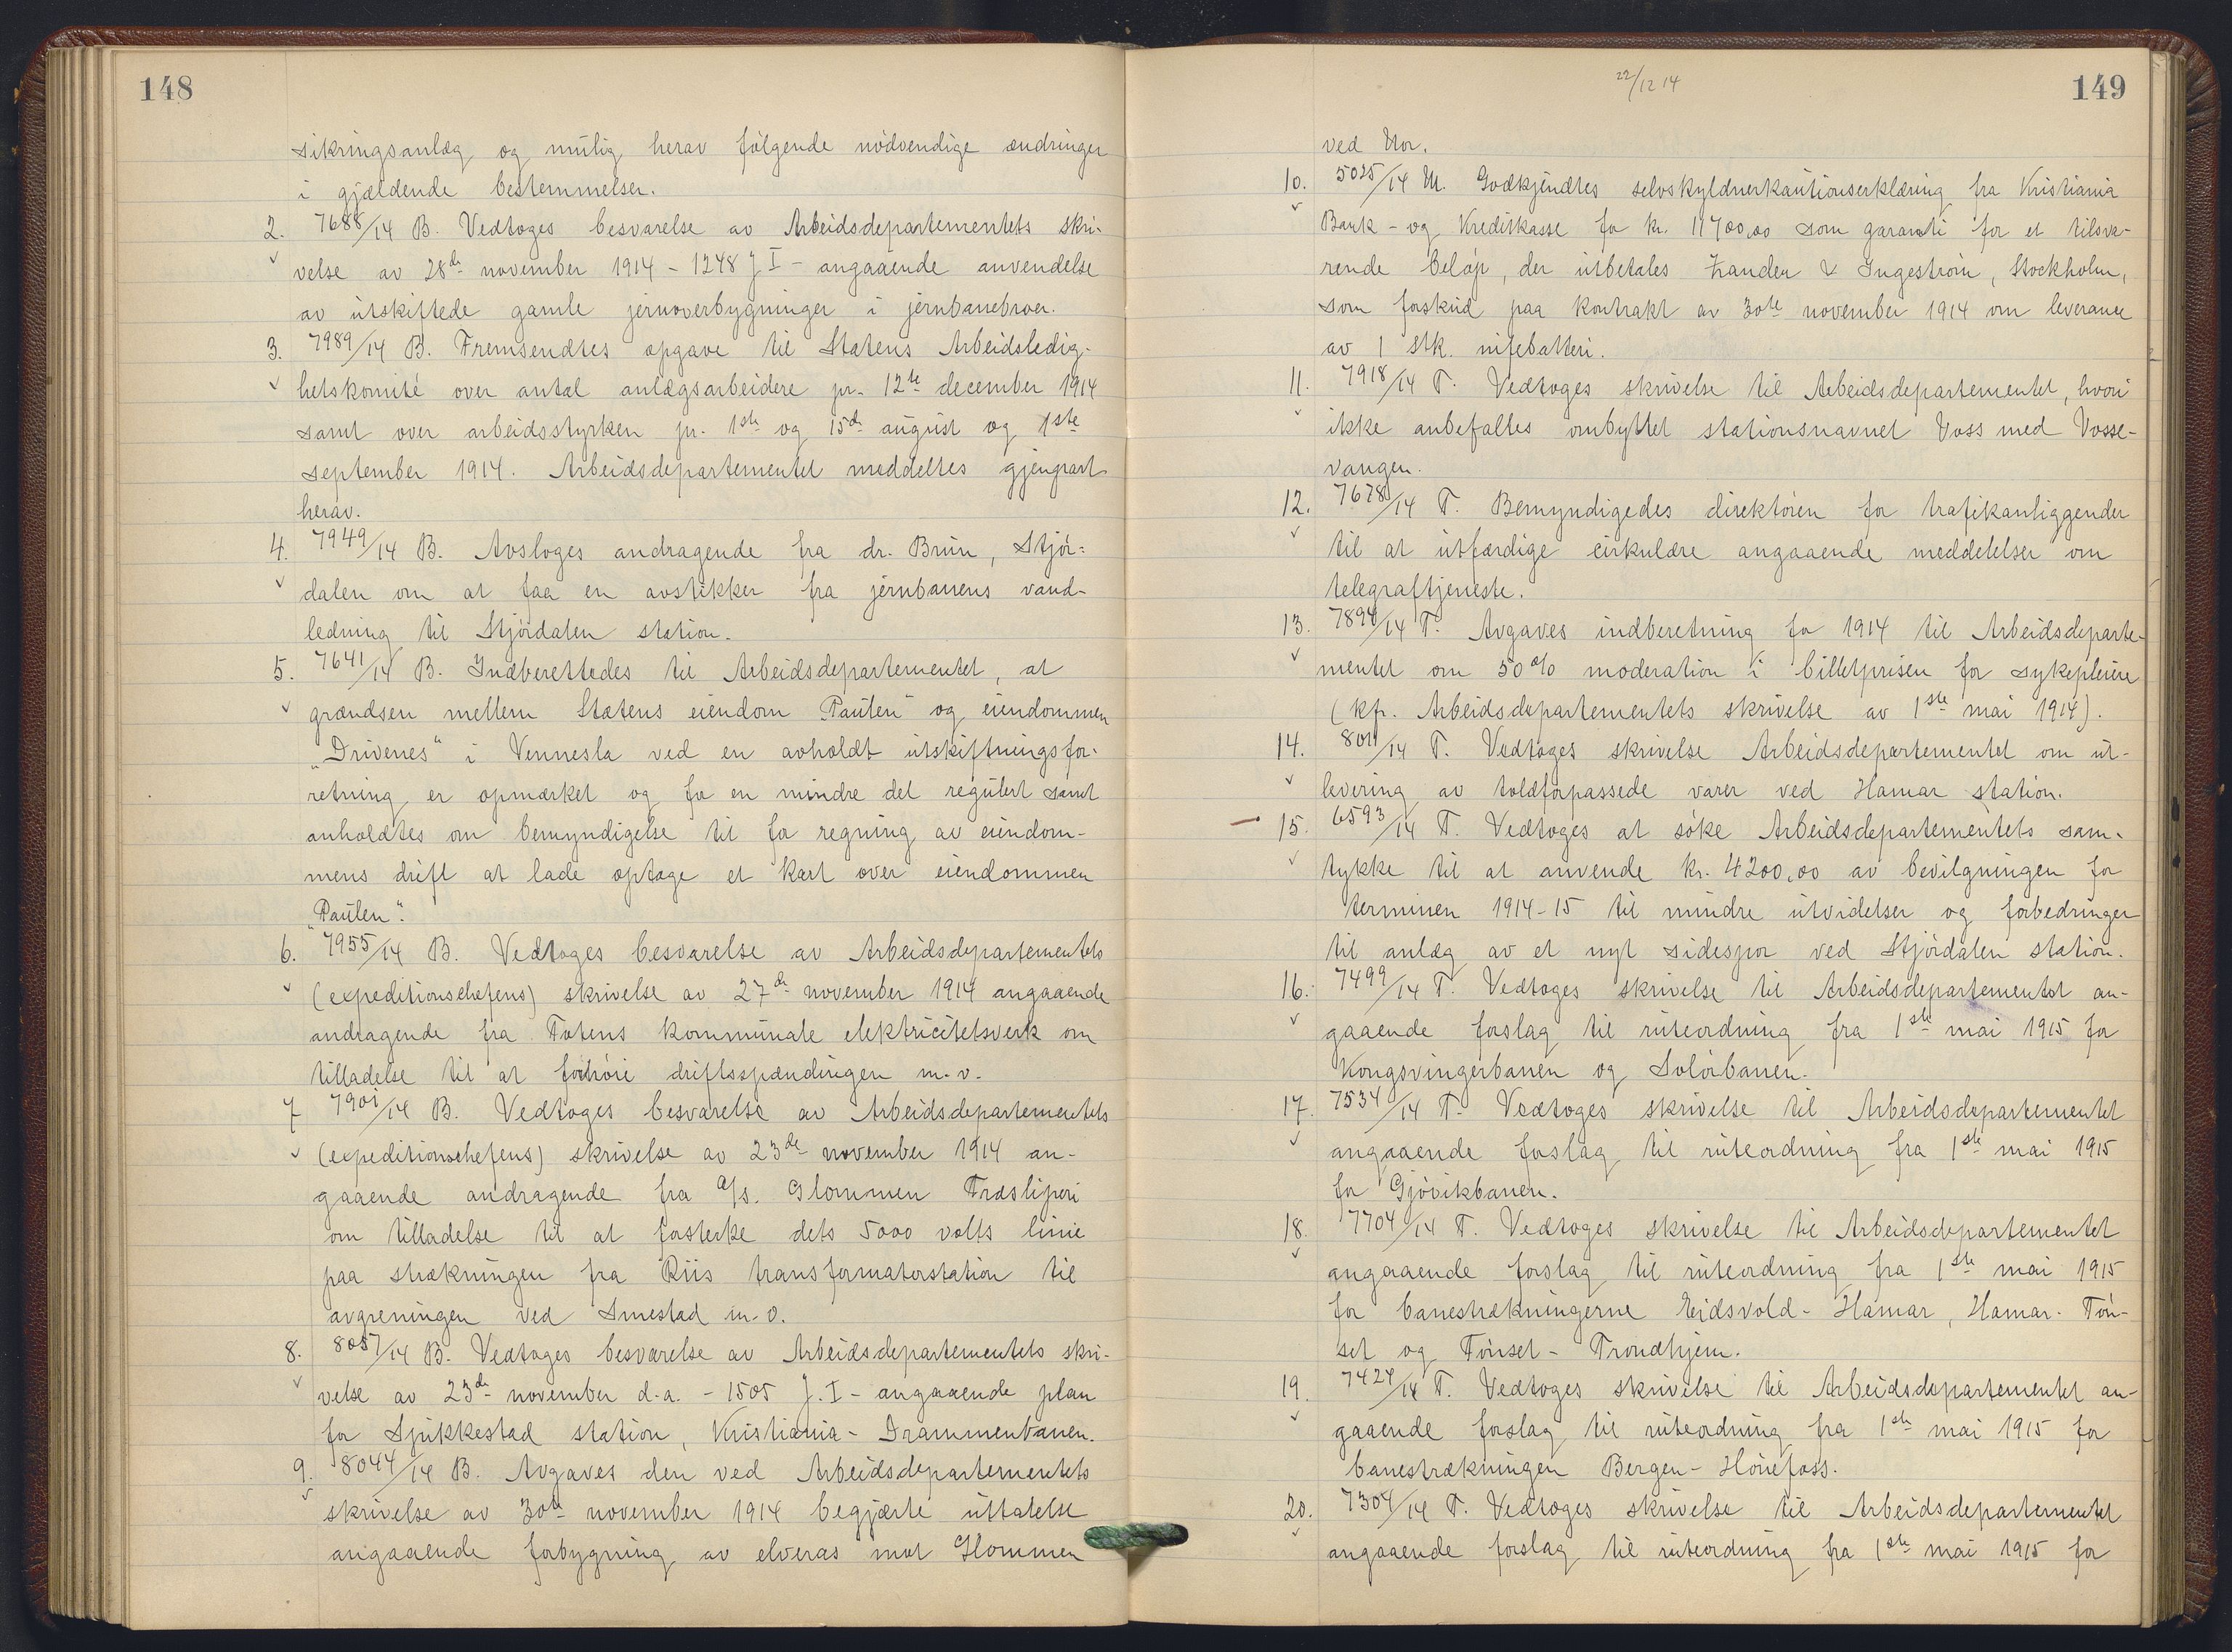 148
sikringsanlæg og mulig herav følgende nødvendige ændringer
i gjældende bestemmelser.
2. 7688/14 B. Vedtoges besvarelse av Arbeidsdepartementets skri-
velse av 28de november 1914 - 1248 J I - angaaende anvendelse
av utskiftede gamle jernoverbygninger i jernbanebroer.
3. 7989/14 B. Fremsendtes opgave til Statens Arbeidsledig-
hetskomité over antal anlægsarbeidere pr. 12te december 1914
samt over arbeidsstyrken pr. 1ste og 15de august og 1ste
september 1914. Arbeidsdepartementet meddeltes gjenpart
herav.
4. 7949/14 B. Avsloges andragende fra dr. Brun, Stjør-
dalen om at faa en avstikker fra jernbanens vand-
ledning til Stjørdalen station.
5. 7641/14 B. Indberettedes til Arbeidsdepartementet, at
grændsen mellem Statens eiendom "Paulen" og eiendommen
"Drivenes" i Vennesla ved en avholdt utskiftningsfor-
retning er opmerket og for en mindre del regulert samt
anholdtes om bemyndigelse til for regning av eiendom-
mens drift at lade optage et kart over eiendommen
"Paulen".
6. 7955/14 B. Vedtoges besvarelse av Arbeidsdepartementets
(expeditionschefens) skrivelse av 27de november 1914 angaaende
andragende fra Totens kommunale elektricitetsverk om
tilladelse til at forhøie driftsspændingen m.v.
7 7901/14 B. Vedtoges besvarelse av Arbeidsdepartementets
(expeditionschefens) skrivelse av 23de november 1914 an-
gaaende andragende fra A/s. Glommen Træsliperi
om tilladelse til at forsterke dets 5000 volts linie
paa strækningen fra Riis transformatorstation til
avgreningen ved Smestad m.v.
8. 8057/14 B. Vedtoges besvarelse av Arbeidsdepartementets skri-
velse av 23de november d.a. - 1505 J. I - angaaende plan
for Spikkestad station, Kristiania - Drammenbanen.
9. 8044/14 B. Avgaves den ved Arbeidsdepartementets
skrivelse av 30te november 1914 begjærte uttalelse
angaaende forbygning av elveras mot Glommen
22/12 14
149
ved Mor.
10. 5025/14 M. Godkjendtes selvskyldnerkautionserklæring fra Kristiania
Bank- og Kreditkasse for kr. 11700,00 som garanti for et tilsva-
rende beløp, der utbetales Zander & Ingeström, Stockholm,
som forskud paa kontrakt av 30te november 1914 om leveranse
av 1 stk. nifebatteri.
11. 7918/14 T. Vedtoges skrivelse til Arbeidsdepartementet, hvori
ikke anbefaltes ombyttet stationsnavnet Voss med Vosse-
vangen.
12. 7678/14 T. Bemyndigedes direktøren for trafikanliggender
til at utfærdige cirkulære angaaende meddelelser om
telegraftjeneste.
13. 7894/14 T. Avgaves indberetning for 1914 til Arbeidsdeparte-
mentet om 50% moderation i billetprisen for sykepleiere
(kfr. Arbeidsdepartementets skrivelse av 1ste mai 1914).
14. 8011/14 T. Vedtoges skrivelse Arbeidsdepartementet om ut-
levering av toldforpassede varer ved Hamar station.
15. 6593/14 T. Vedtoges at søke Arbeidsdepartementets sam-
tykke til at anvende kr. 4200,00 av bevilgningen for
terminen 1914-15 til mindre utvidelser og forbedringer
til anlæg av et nyt sidespor ved Stjørdalen station.
16. 7499/14 T. Vedtoges skrivelse til Arbeidsdepartementet an-
gaaende forslag til ruteordning fra 1ste mai 1915 for
Kongsvingerbanen og Solørbanen.
17. 7534/14 T. Vedtoges skrivelse til Arbeidsdepartementet
angaaende forslag til ruteordning fra 1ste mai 1915
for Gjøvikbanen.
18. 7704/14 T. Vedtoges skrivelse til Arbeidsdepartementet
angaaende forslag til ruteordning fra 1ste mai 1915
for banestrækningerne Eidsvold - Hamar, Hamar - Tøn-
set og Tønset - Trondhjem.
19. 7424/14 T. Vedtoges skrivelse til Arbeidsdepartementet an-
gaaende forslag til ruteordning fra 1ste mai 1915 for
banestrækningen Bergen - Hønefoss.
20. 7304/14 T. Vedtoges skrivelse til Arbeidsdepartementet
angaaende forslag til ruteordning fra 1ste mai 1915 for